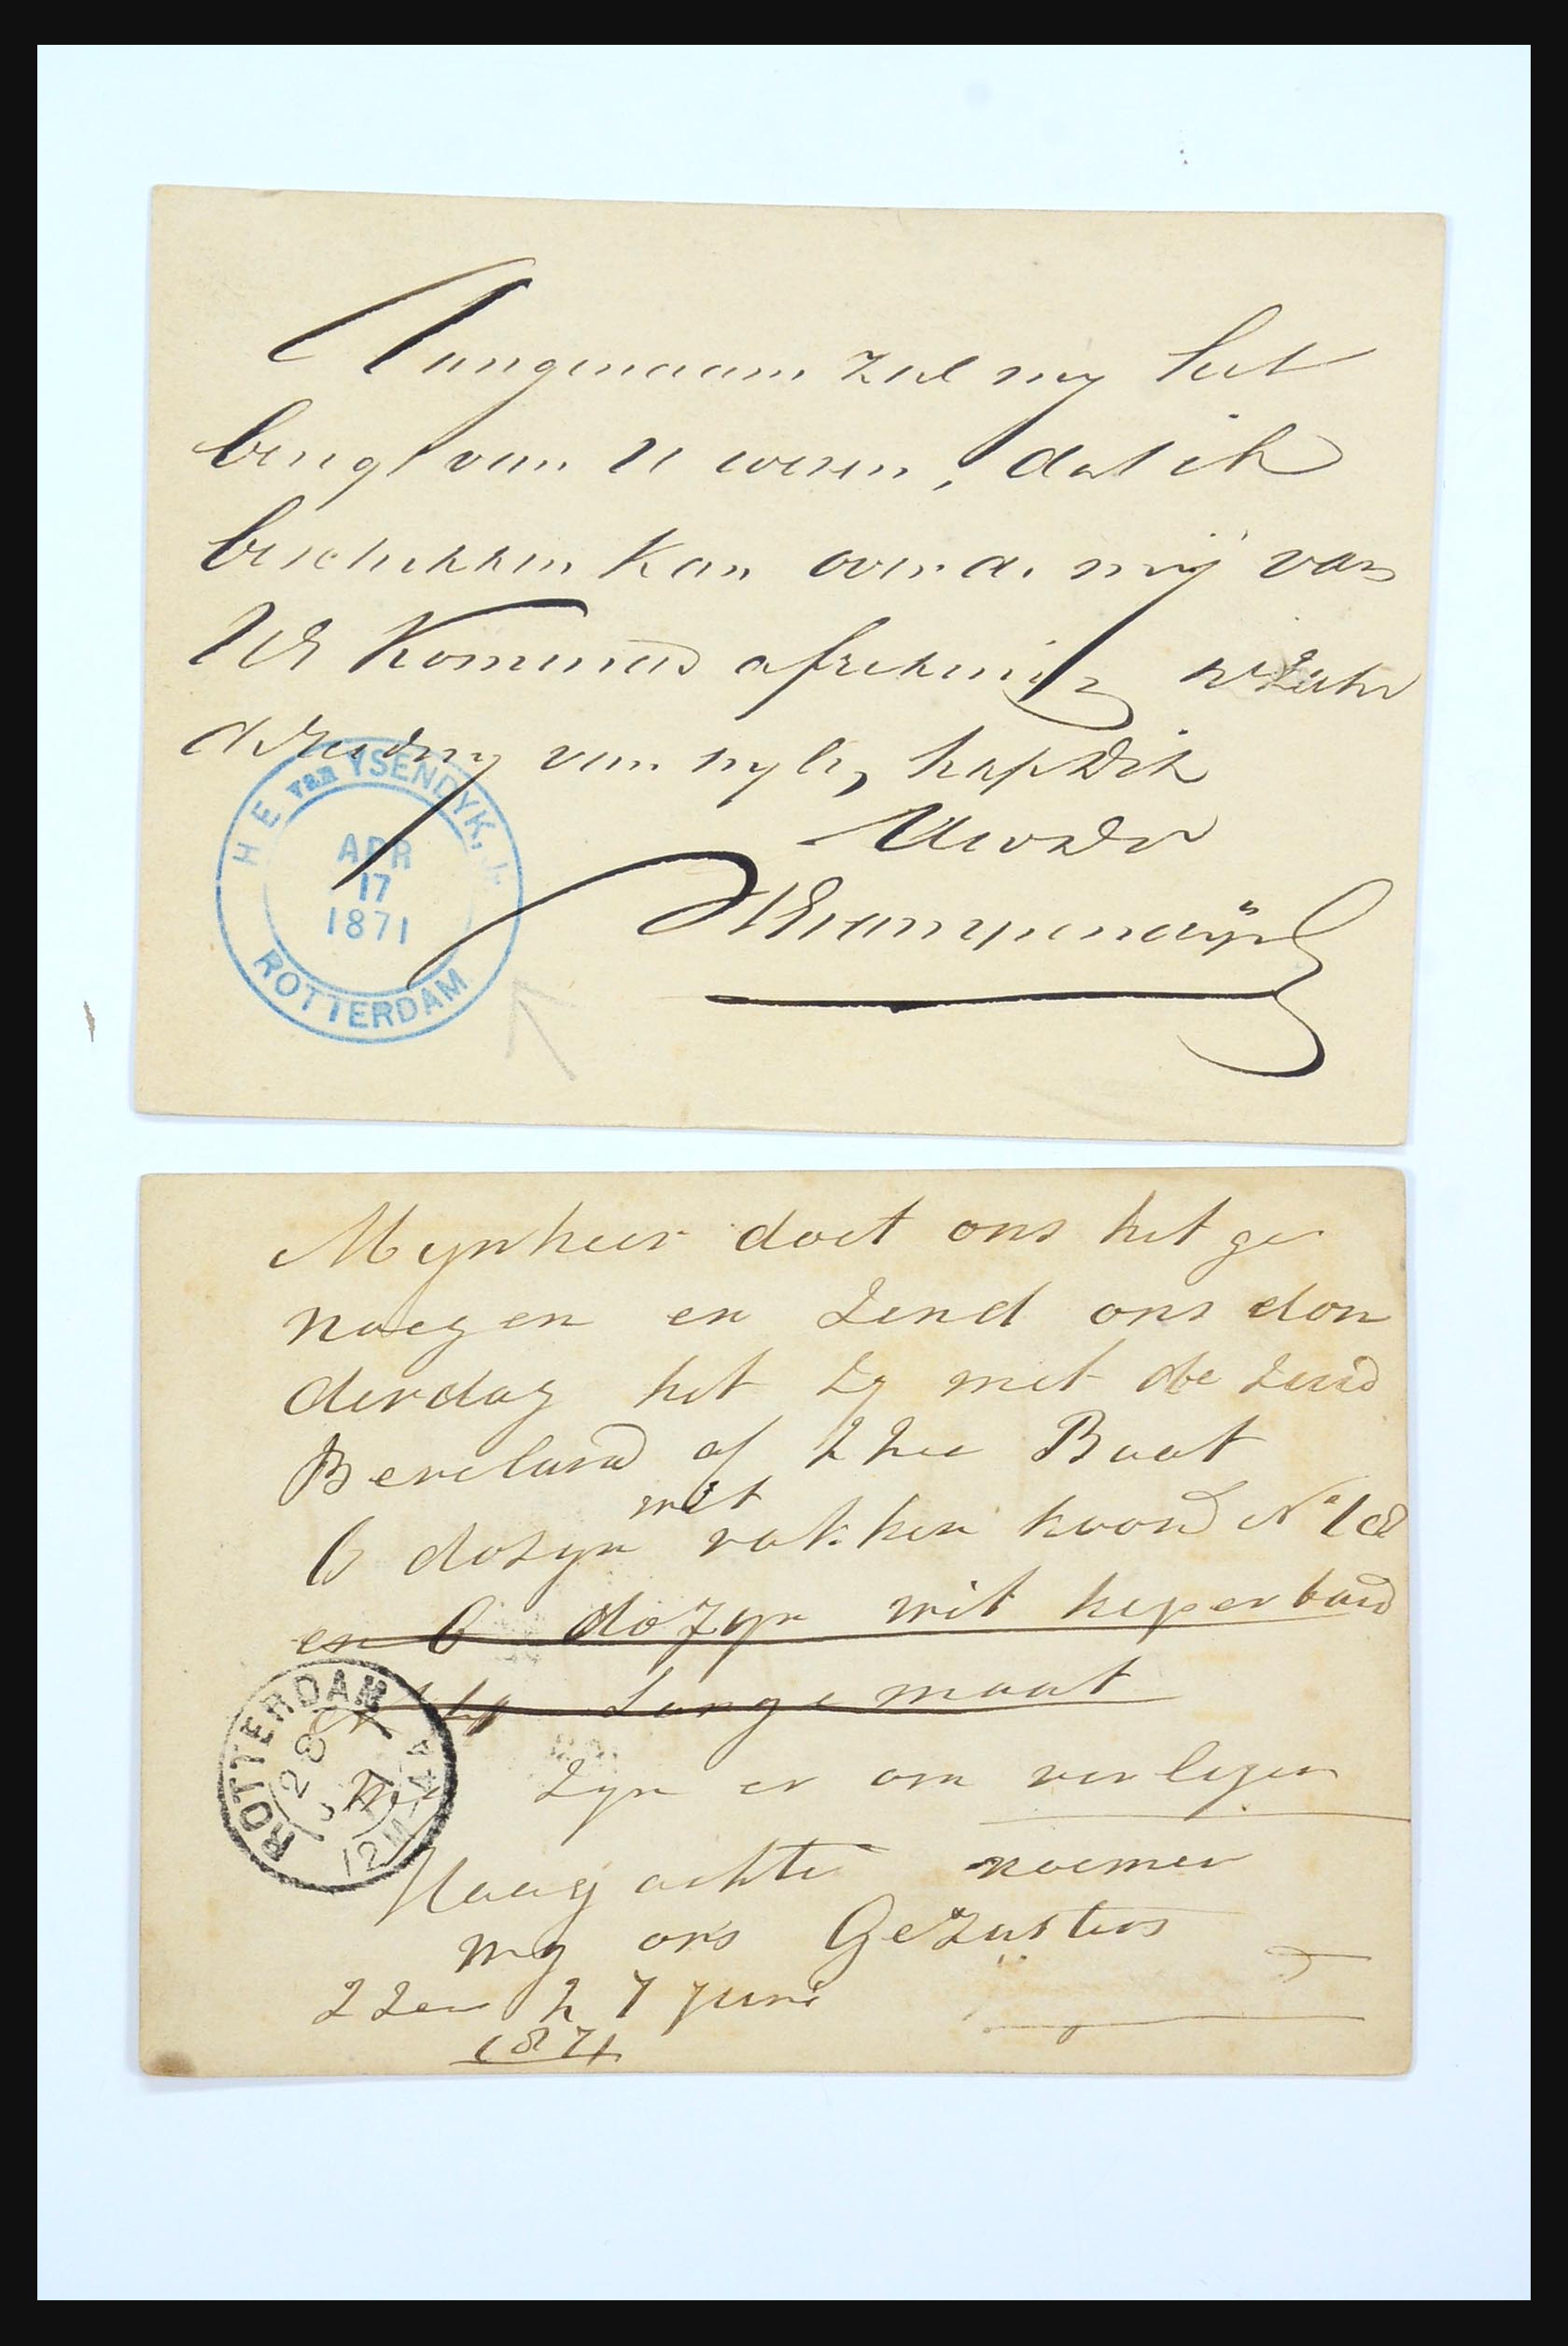 Aangenaam zal my het
berigt van U wezen, dat ik
beschikken kan over de mij van
UE Komende afrekening
van
UwedDr
H E van YSENDYK, Jr.
APR
17
1871
ROTTERDAM
Mynheer doet ons het ge
noegen en zend ons don
derdag het zy met de zuid
Beveland of Zzee Boot
6 dozyn wit rokken koord No 18
en 6 dozyn wit keperband
Lange maat
zyn er om verlegen
Haag achte noemen
wy ons Gezusters
ZZee 27 Juni
1871
ROTTERDAM
28
71
12M-4A